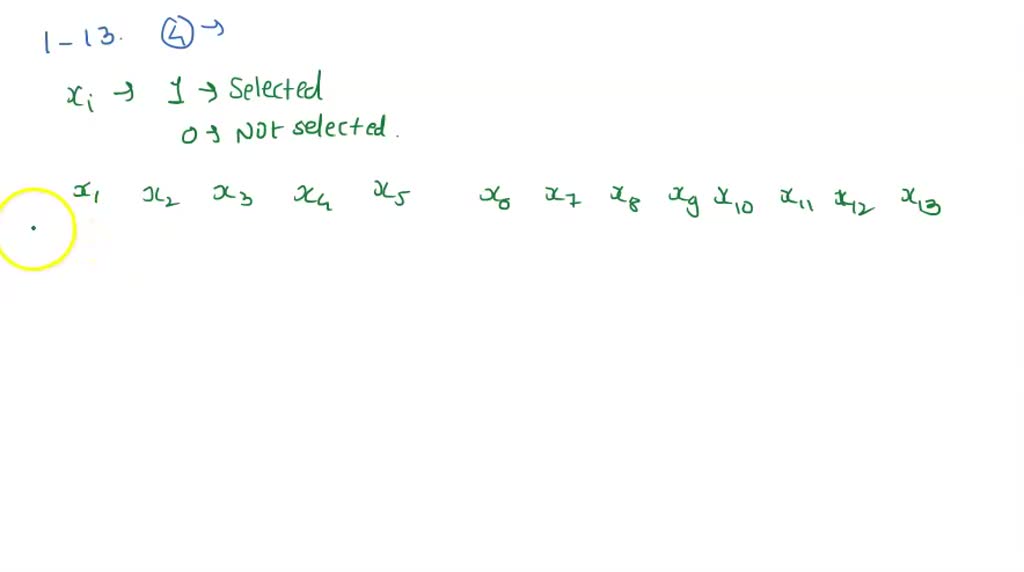 1-13. ④→
xᵢ → 1 → Selected
0→ Not selected.
x₁ x₂ x₃ x₄ x₅ x₆ x₇ x₈ x₉ x₁₀ x₁₁ x₁₂ x₁₃